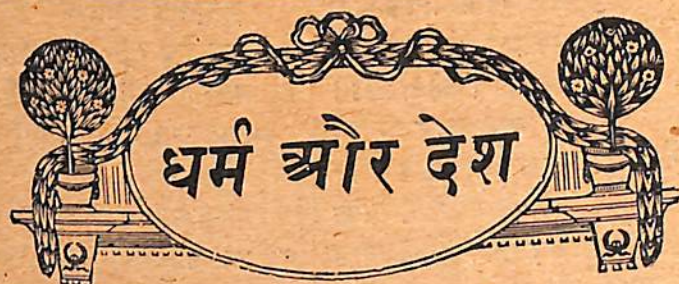 धर्म और देश